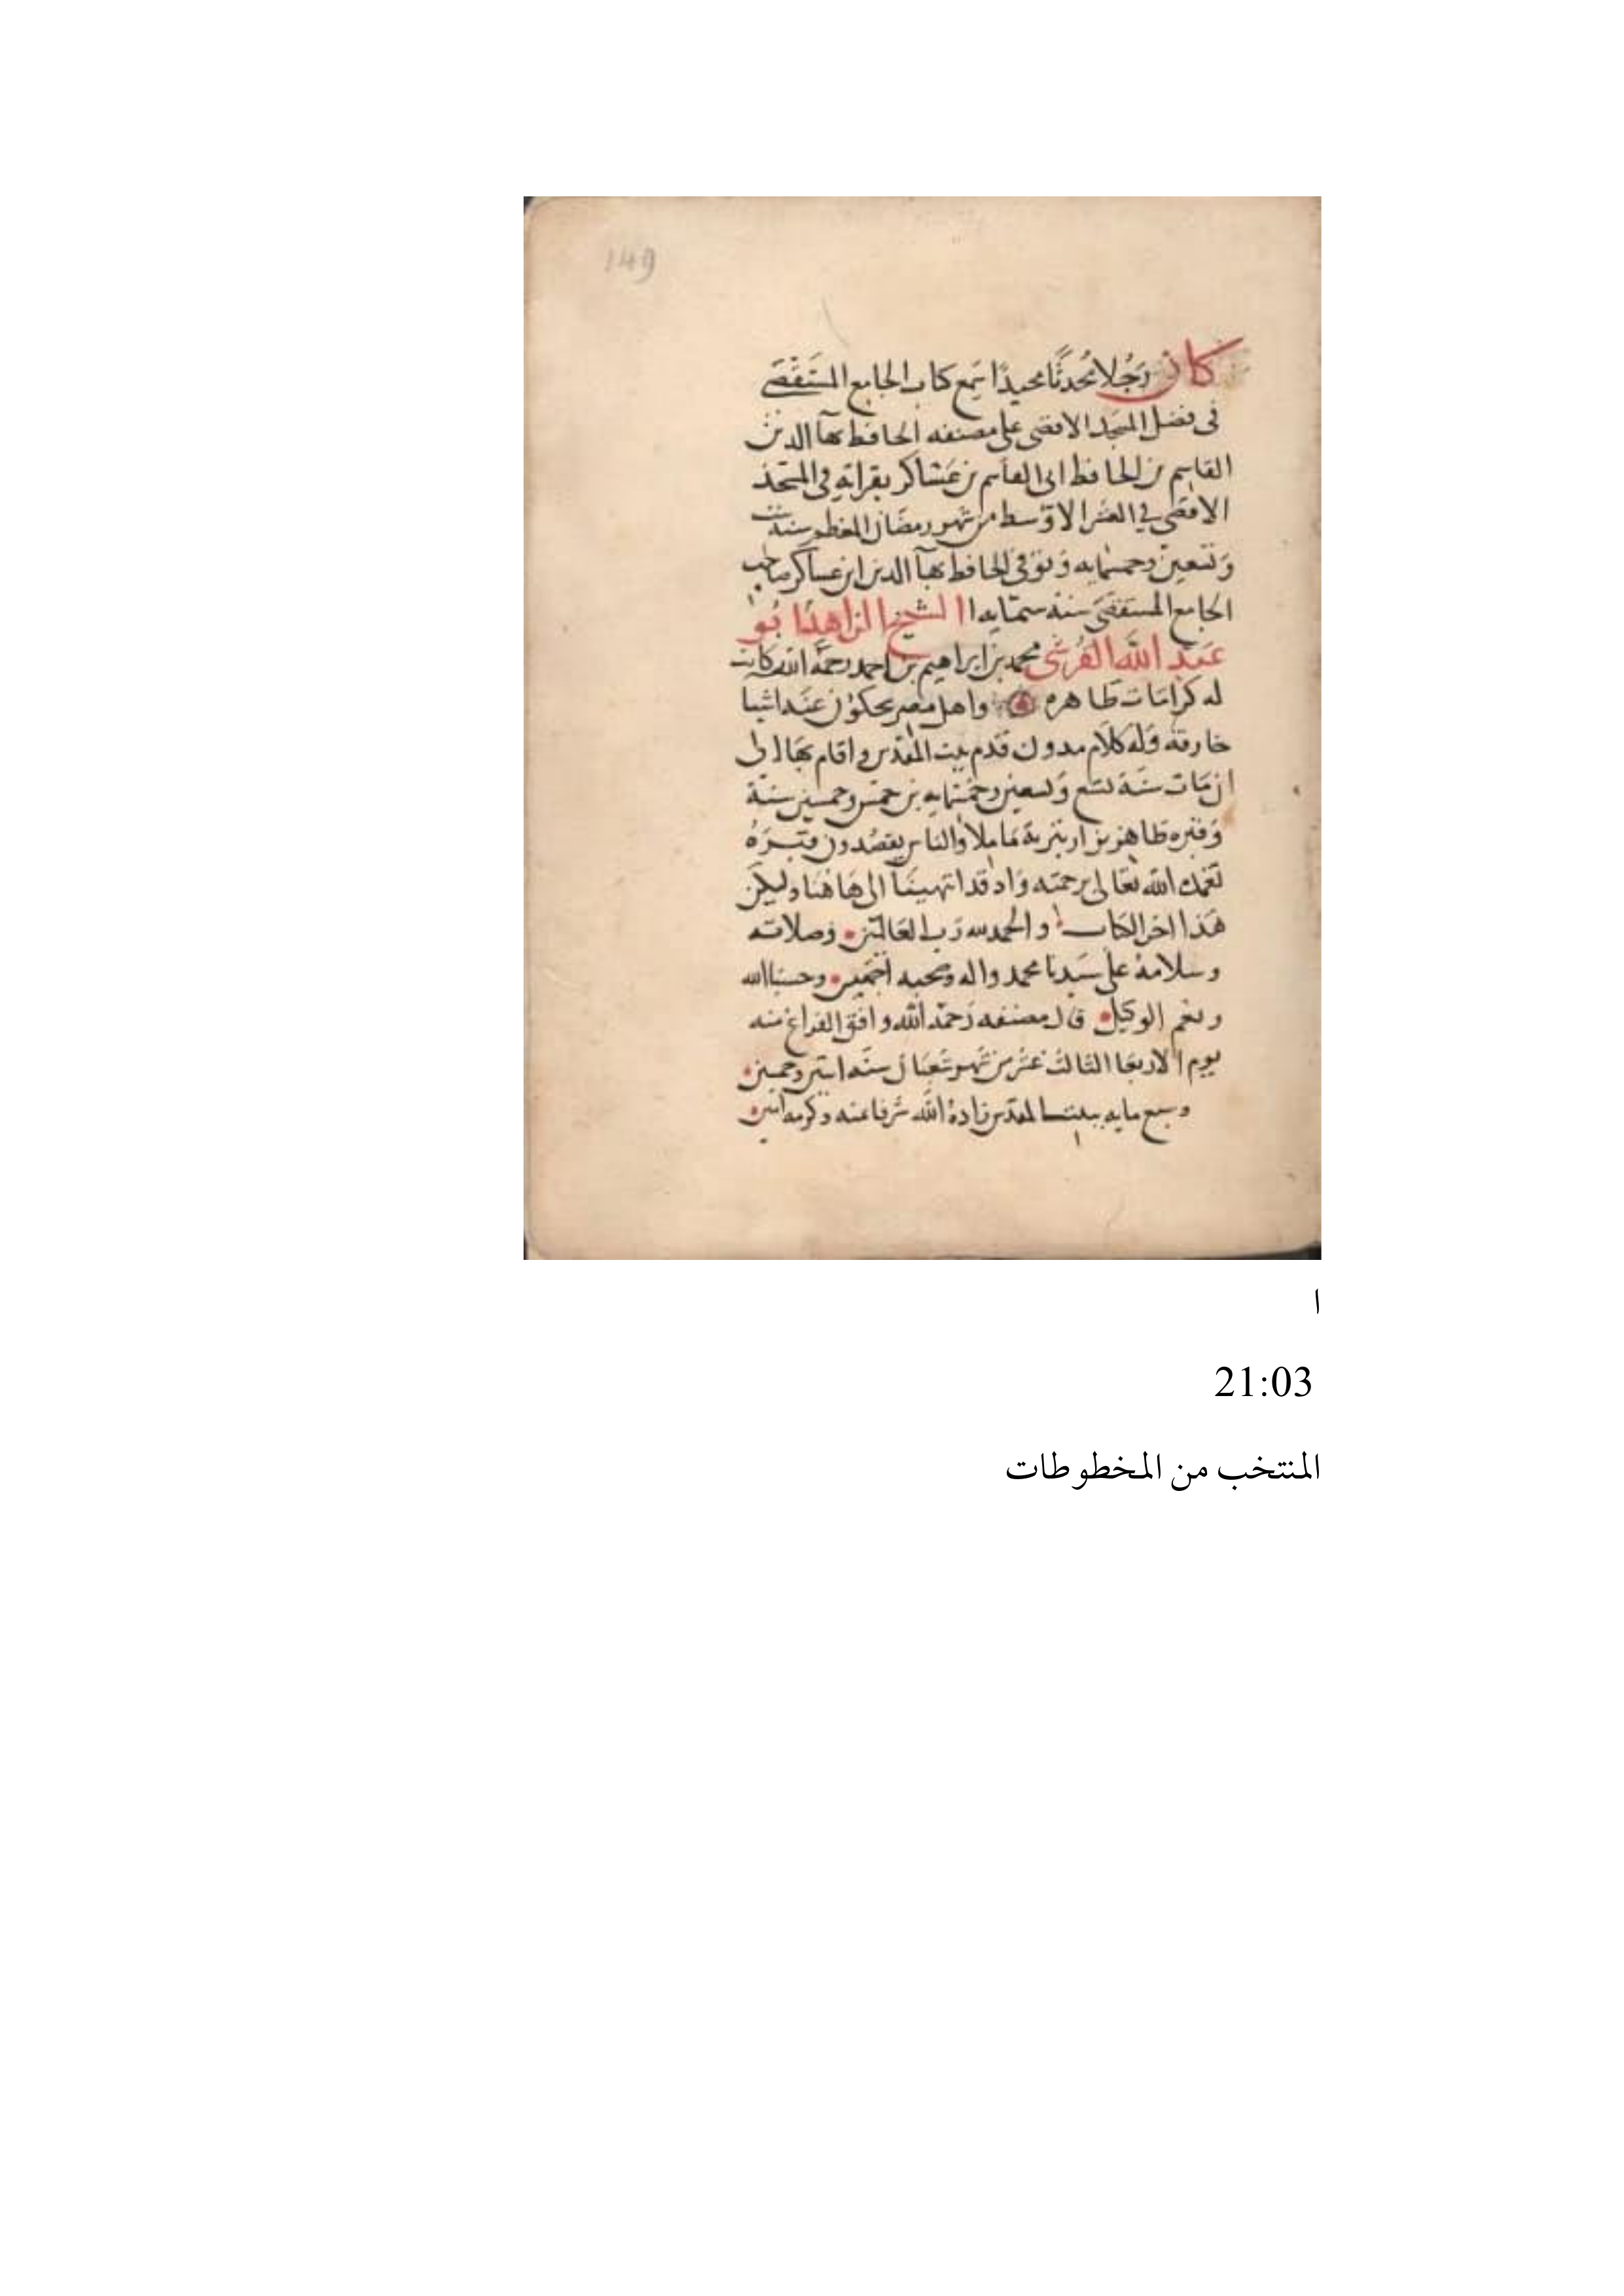 149
كان رجلا محدثا مجيدا سمع كتاب الجامع المستقصى
في فضل المسجد الاقصى على مصنفه الحافظ بهآ الدين
القاسم بن الحافظ ابي القاسم بن عساكر بقراته في المسجد
الاقصى في العشر الاوسط من شهر رمضان المعظم سنة ست
وتسعين وخمسمايه وتوفي الحافظ بهآ الدين ابن عساكر صاحب
الجامع المستقصى سنة ستمايه الشيخ الزاهد ابو
عبد الله القرشي محمد بن ابراهيم بن احمد رحمه الله كانت
له كرامات ظاهره واهل مصر يحكون عنه اشيا
خارقة وله كلام مدون قدم بيت المقدس واقام بها الى
ان مات سنة تسع وتسعين وخمسمايه بن خمس وخمسين سنة
وقبره ظاهر يزار بتربة ماملا والناس يقصدون قبره
تغمده الله تعالى برحمته واذ قد انتهينا الى هاهنا وليكن
هذا اخر الكتاب والحمد لله رب العالمين وصلاته
وسلامه على سيدنا محمد واله وصحبه اجمعين وحسبنا الله
ونعم الوكيل قال مصنفه رحمه الله وافق الفراغ منه
يوم الاربعا الثالث عشر من شهر شعبان سنه اثنين وخمسين
وسبع مايه ببيت المقدس زاده الله شرفا عنه وكرمه امين
ا
21:03
المنتخب من المخطوطات